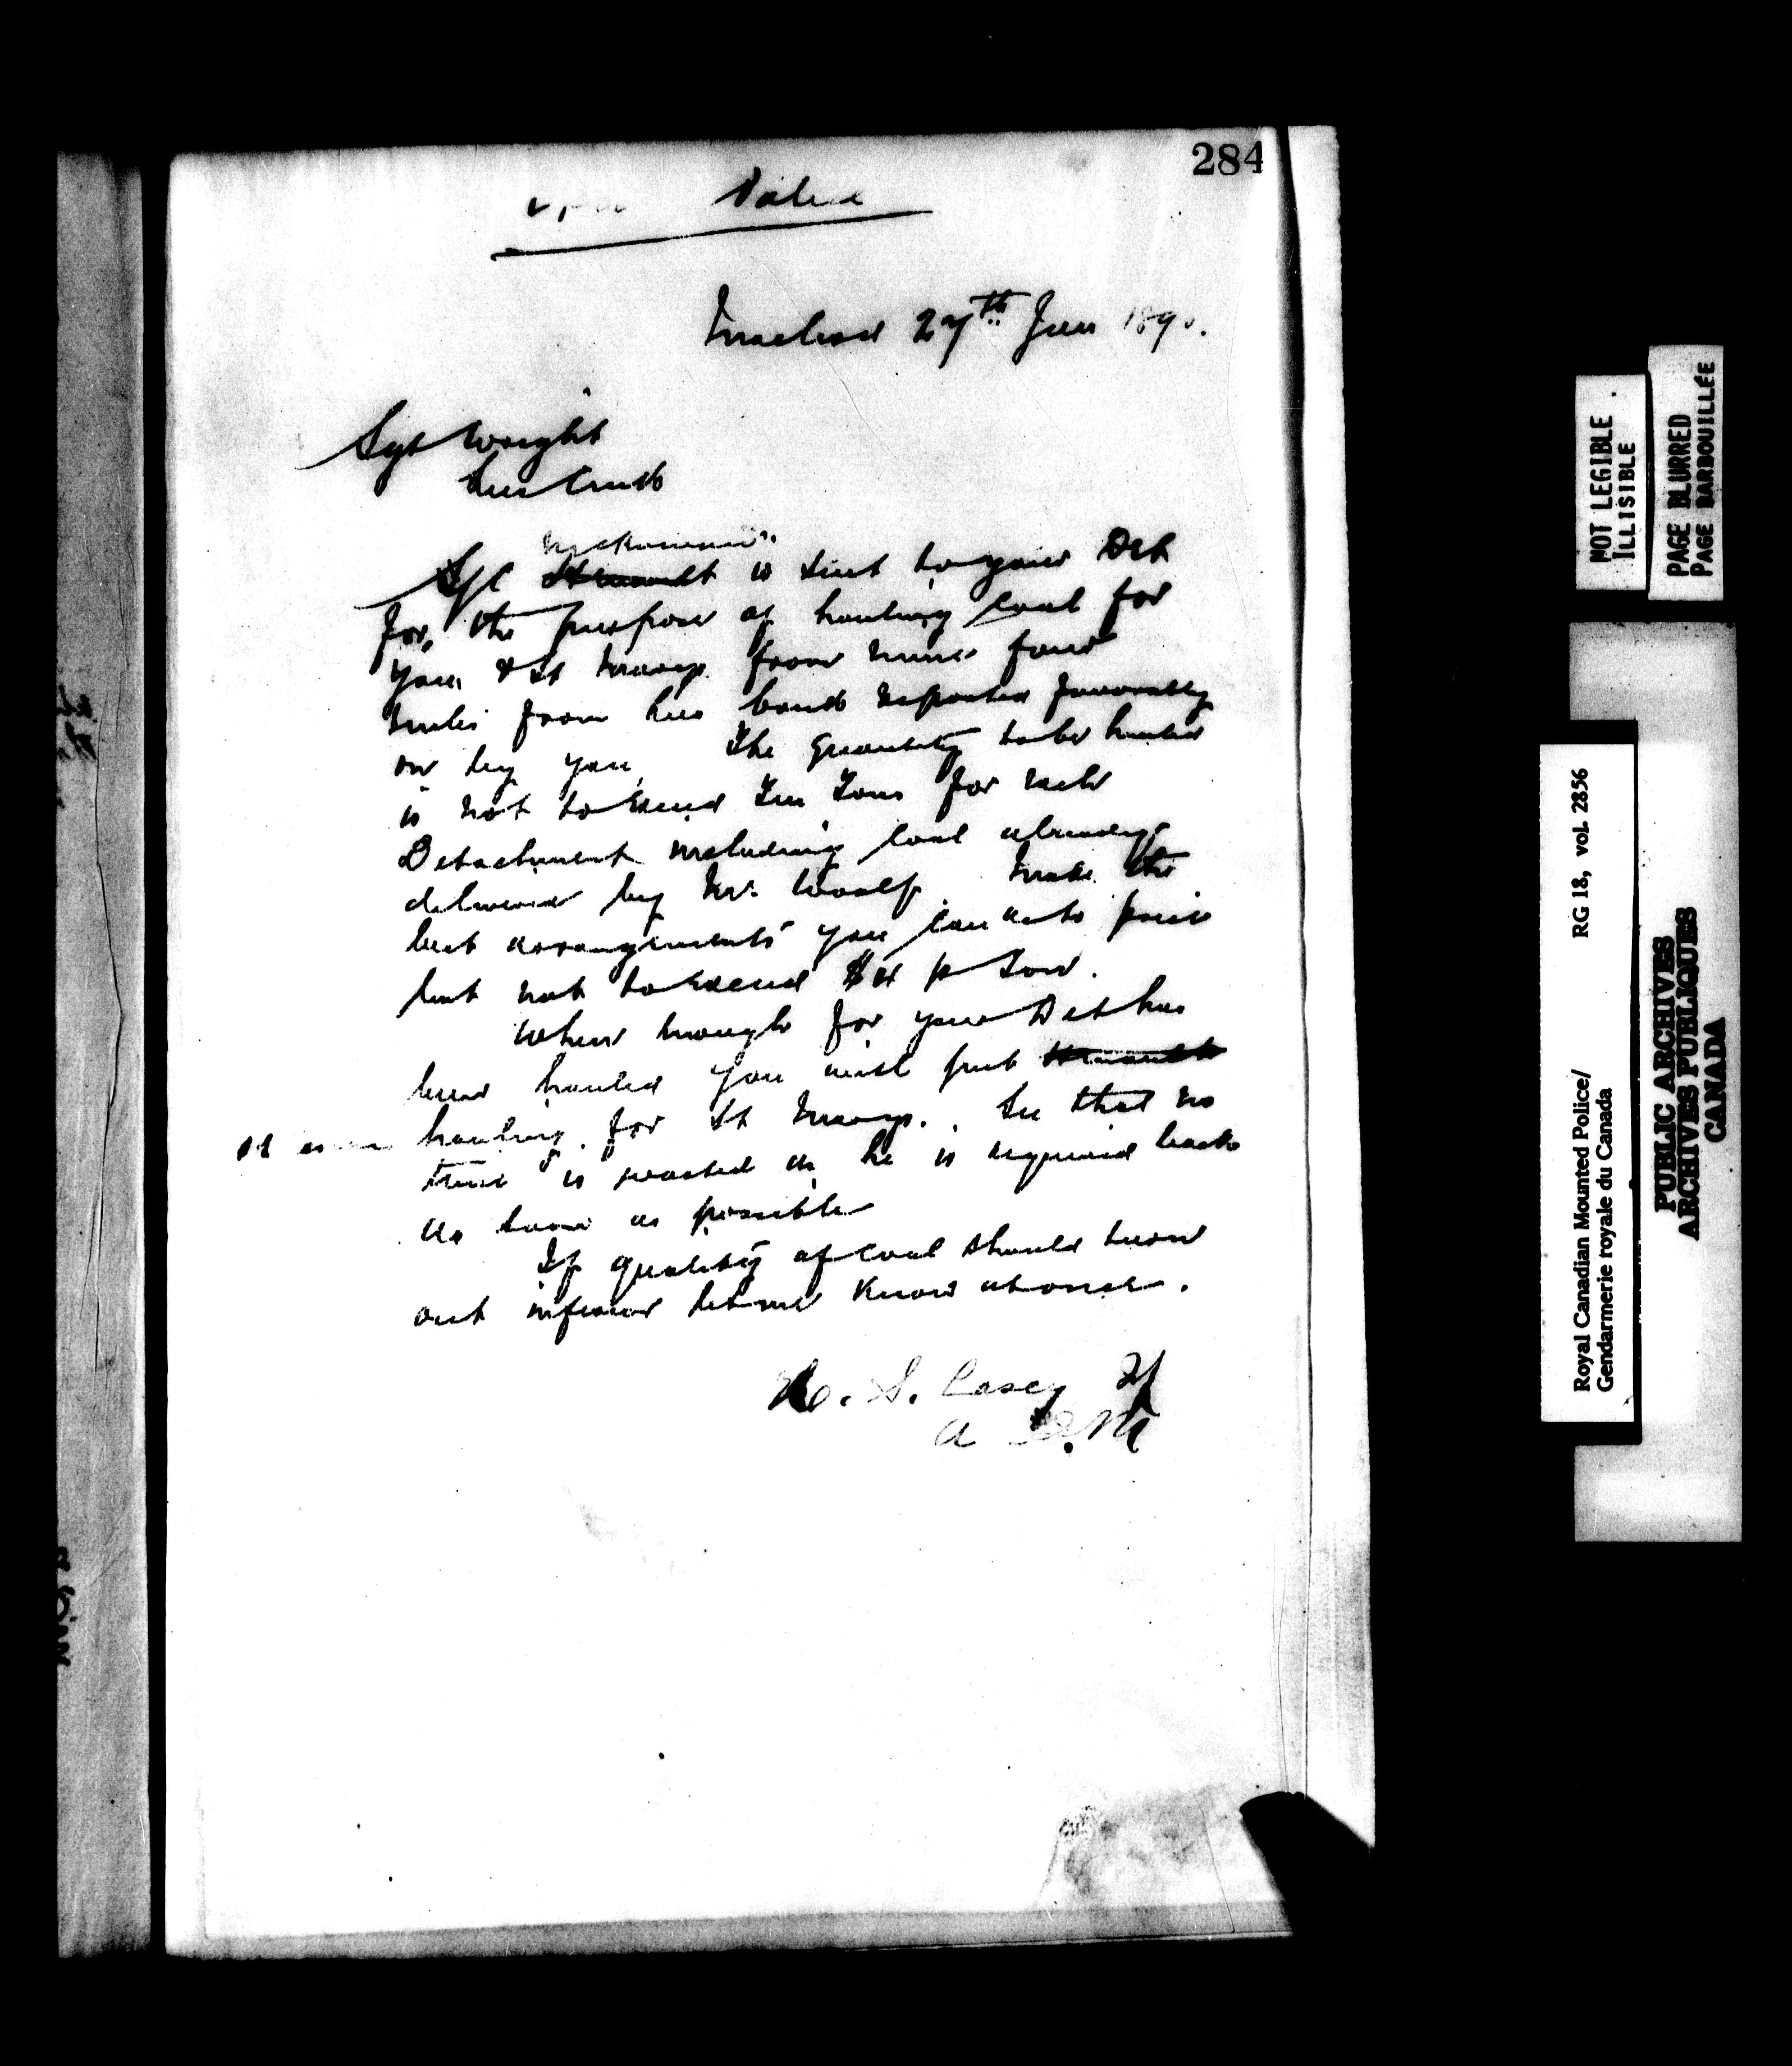 284
Macleod 27th Jan 1890.
Sgt Wright
Lees Creek
Sgt is sent to your Det
for the purpose of hauling coal for
you & St Marys from mines four
miles from Lees Creek reported favorably
on by you. The quantity to be hauled
is not to exceed Ten Tons for each
Detachment including coal already
delivered by Mr. Woolf. Make the
best arrangements you can as to price
but not to exceed $4 p Ton.
When enough for your Det has
been hauled you will put
hauling for St Marys. See that no
time is wasted as he is required back
as soon as possible
If quality of coal should turn
out inferior let me know at once.
S. Casey
NOT LEGIBLE
ILLISIBLE
PAGE BLURRED
PAGE BARBOUILLÉE
Royal Canadian Mounted Police/ RG 18, vol. 2856
Gendarmerie royale du Canada
PUBLIC ARCHIVES
ARCHIVES PUBLIQUES
CANADA